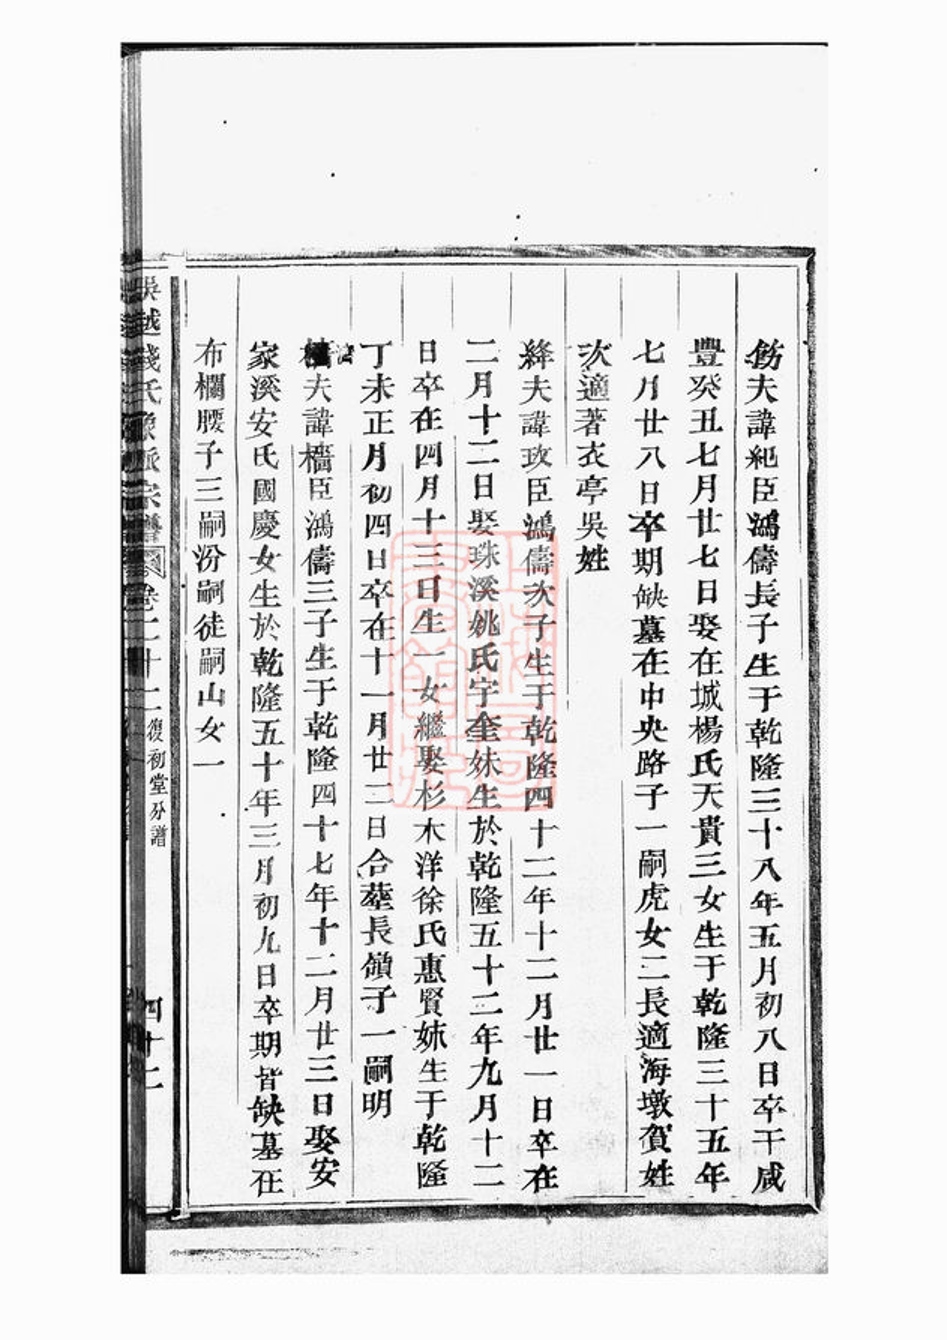 夫諱紀臣鴻儔長子生于乾隆三十八年五月初八日卒于咸
豐癸丑七月廿七日娶在城楊氏天貴三女生于乾隆三十五年
七月廿八日卒期缺墓在中央路子一嗣虎女二長適海墩賀姓
次適著衣亭吳姓
絳夫諱玫臣鴻儔次子生于乾隆四十二年十二月廿一日卒在
二月十二日娶珠溪姚氏宇奎妹生於乾隆五十二年九月十二
日卒在四月十三日生一女繼娶杉木洋徐氏惠賢姊生于乾隆
丁未正月初四日卒在十一月廿三日合塟長嶺子一嗣明
夫諱檣臣鴻儔三子生于乾隆四十七年十二月廿三日娶安
家溪安氏國慶女生於乾隆五十年三月初九日卒期皆缺墓在
布欄腰子三嗣汾嗣徒嗣山女一
吳越錢氏宗譜 卷二十二 復初堂分譜 四十二